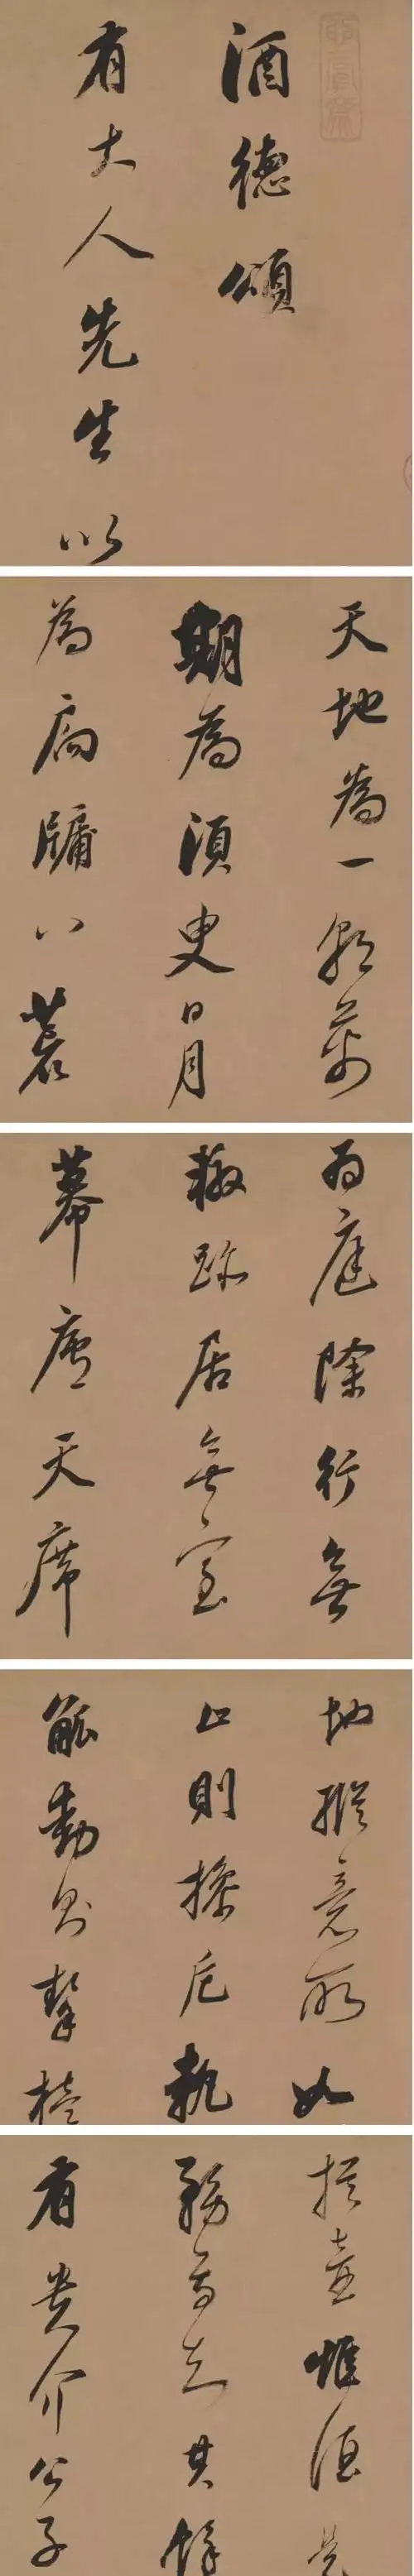 酒德頌
有大人先生以
天地為一朝萬
期為須臾日月
為扃牖八荒
為庭除行無
轍跡居無室
幕廬天席
地縱意所如
止則操卮執
觚動則挈榼
提壺惟酒是
務焉知其餘
有貴介公子